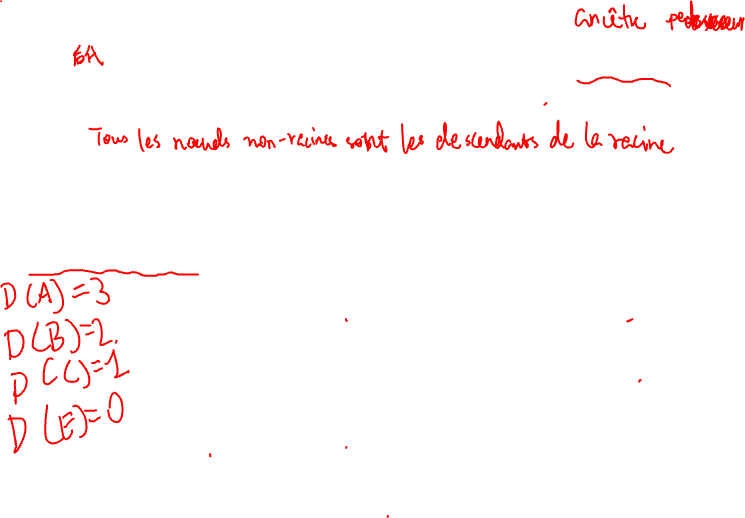 ancêtre
Tous les nœuds non-racines sont les descendants de la racine
D(A)=3
D(B)=2.
D(C)=1
D(E)=0